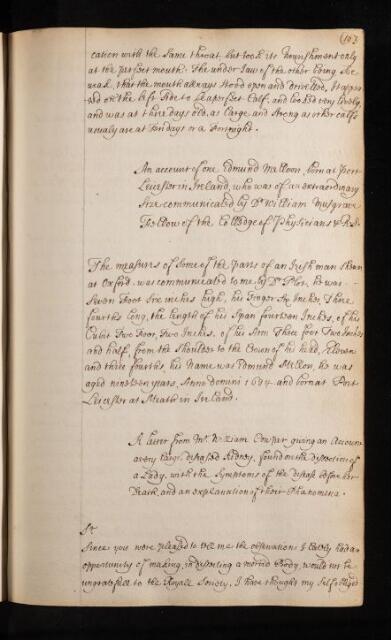 (103
cation with the same throat but took its Nourishment only
at the perfect mouth: The under Jaw of the other being soe
weak, that the mouth allways stood open and drivelled, it appea
red on the left side to be a perfect Calf, and looked very lively,
and was at three days old, as large and strong as other calfs
usualy are at Ten days or a Fortnight.
An account of one Edmund Malloon, born at Port
Leicester in Ireland, who was of an extraordinary
size communicated by Dr William Musgrave
Fellow of the Colledge of Physicians & R.S.
The measures of some of the parts of an Irish man shown
at Oxford, was communicated to me by Dr Plot, he was
Seven Foot Six inches high, his Finger Six Inches, Three
fourths long, the length of his Span fourteen Inches, of his
Cubit Two Foot, Two Inches, of his Arm Three foot Two Inches
and half, from the Shoulder to the Crown of his head, Eleven
and three fourths, his Name was Edmund Mellon, he was
aged nineteen years, Anno domini 1684. and born at Port
Leicester at Meath in Ireland.
A letter from Mr William Cowper giving an Account
a very large diseased Kidney, found on the dissection of
a Lady, with the Symptoms of the disease before her
Death, and an explanation of their Phænomena.
Sr
Since you were pleased to tell me the observations I lately had an
opportunity of making, in dissecting a morbid Body, would not be
ungratefull to the Royall Society, I have thought my self obliged